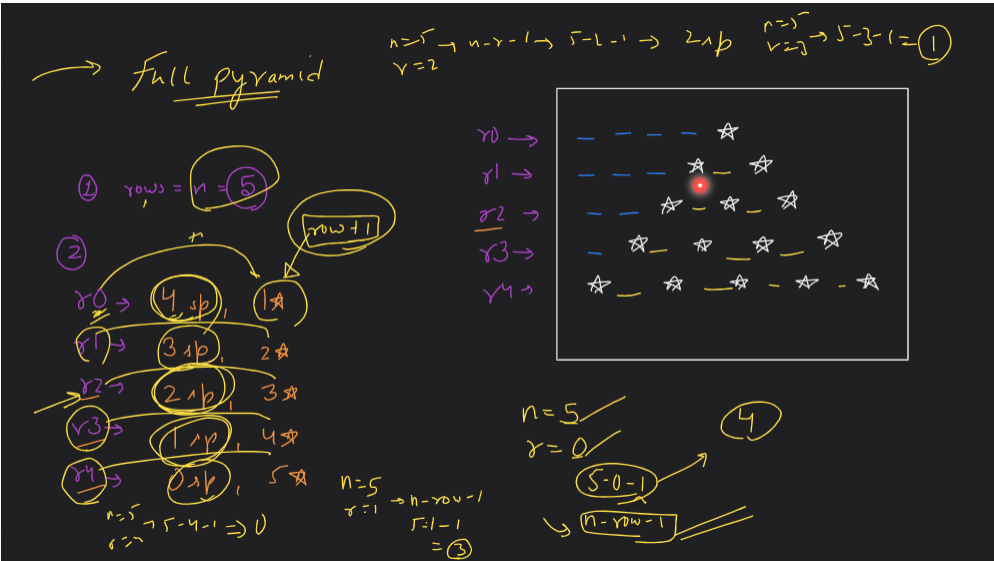 → Full pyramid
n=5 → n-r-1 → 5-2-1 → 2sp
r=2
n=5
r=3 → 5-3-1 = 1
① rows = n = 5
row+1
②
r0 → 4 sp, 1☆
r1 → 3 sp, 2☆
r2 → 2 sp, 3☆
r3 → 1 sp, 4☆
r4 → 0 sp, 5☆
n=5
→ 5-4-1 ⇒ 0
r0 → _ _ _ _ ☆
r1 → _ _ _ ☆ _ ☆
r2 → _ _ ☆ _ ☆ _ ☆
r3 → _ ☆ _ ☆ _ ☆ _ ☆
r4 → ☆ _ ☆ _ ☆ _ ☆ _ ☆
n=5
r=1 → n-row-1
5-1-1
= 3
n=5
r=0
5-0-1 → 4
n-row-1